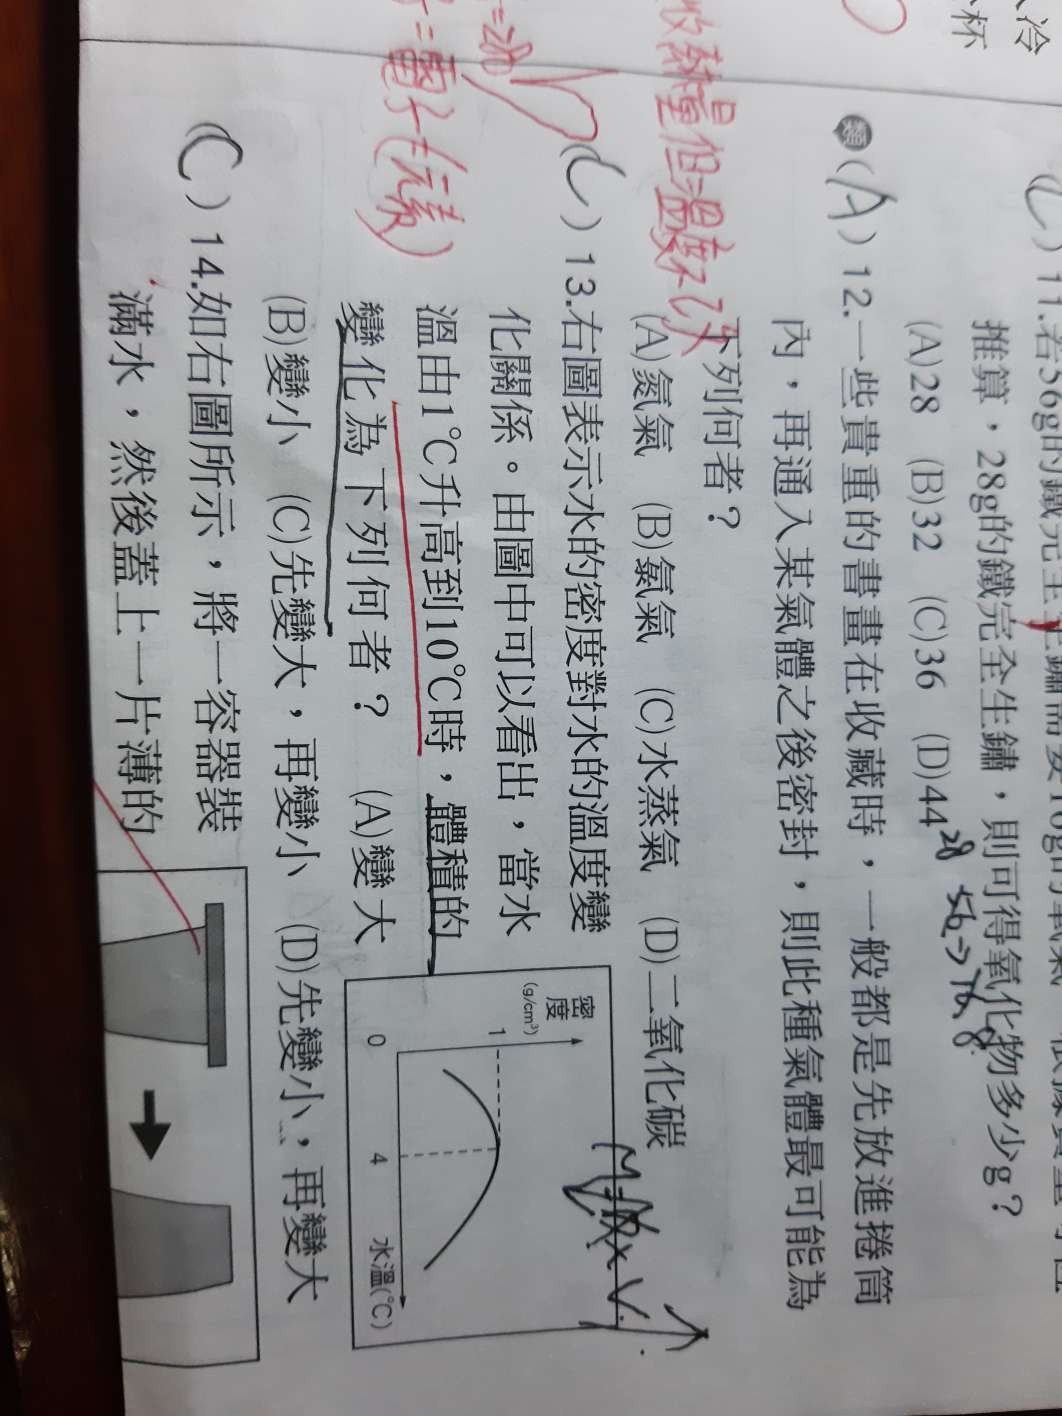 入冷
杯
(C) 11.若56g的鐵完全生鏽需要16g的氧氣
推算,28g的鐵完全生鏽,則可得氧化物多少g?
(A)28 (B)32 (C)36 (D)44
28 56->16 8
類 (A) 12.一些貴重的書畫在收藏時,一般都是先放進捲筒
內,再通入某氣體之後密封,則此種氣體最可能為
下列何者?
(A)氮氣 (B)氯氣 (C)水蒸氣 (D)二氧化碳
(C) 13.右圖表示水的密度對水的溫度變
化關係。由圖中可以看出,當水
溫由1℃升高到10℃時,體積的
變化為下列何者? (A)變大
(B)變小 (C)先變大,再變小 (D)先變小,再變大
密度
(g/cm³)
1
0
4
水溫(℃)
(C) 14.如右圖所示,將一容器裝
滿水,然後蓋上一片薄的